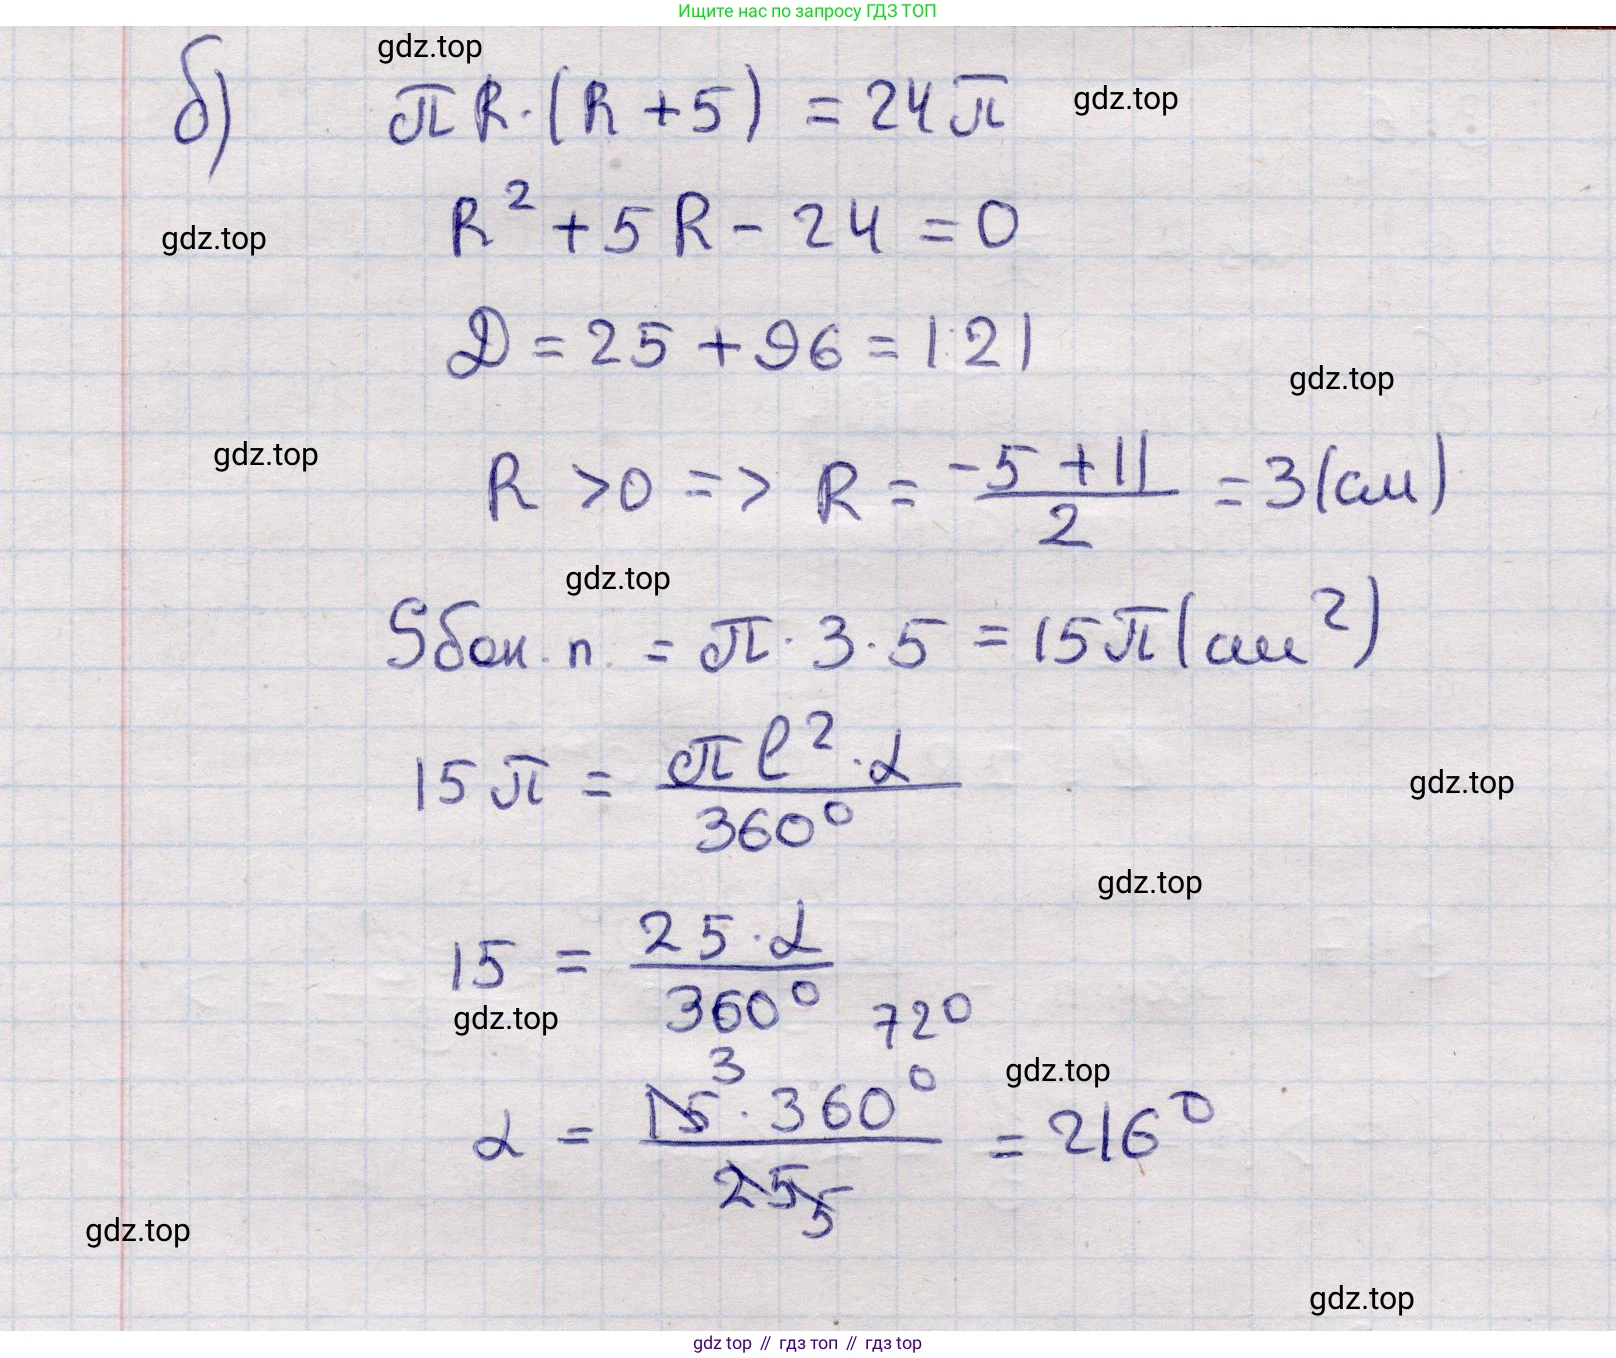 Ищите нас по запросу ГДЗ ТОП
gdz.top
б) πR·(R+5) = 24π
gdz.top
R² + 5R - 24 = 0
gdz.top
D = 25 + 96 = 121
gdz.top
gdz.top
R > 0 => R = (-5+11)/2 = 3(см)
gdz.top
Sбок.п. = π·3·5 = 15π(см²)
15π = (πl²·α)/360°
gdz.top
gdz.top
15 = (25·α)/360°
gdz.top
72°
gdz.top
α = (15 3·360°)/(25 5) = 216°
gdz.top
gdz.top
gdz top // гдз топ // гдз top